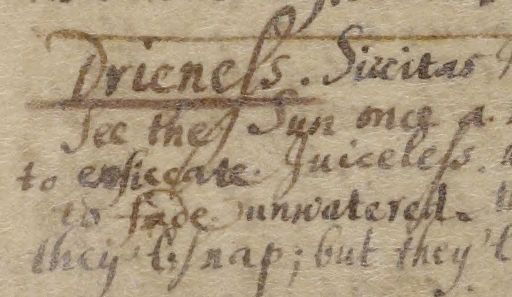 Drieneſs. Siccitas
See the Sun once a
to exſiccate. Juiceleſs.
to fade. unwatered.
they'l ſnap; but they'l